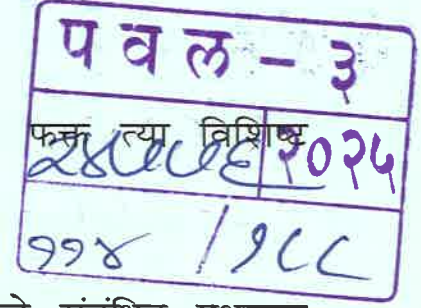 प व ल - ३
फक्त त्या विशिष्ट
२४७७६ २०२५
११४ / १८८